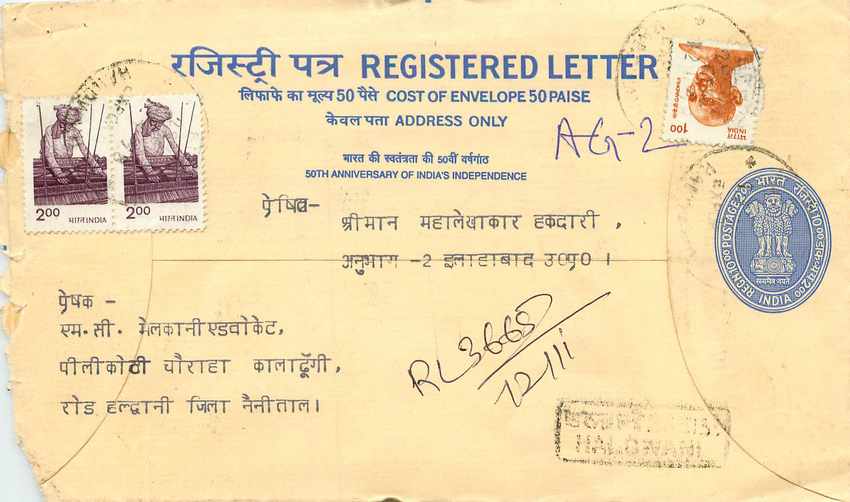 रजिस्ट्री पत्र REGISTERED LETTER
लिफाफे का मूल्य 50 पैसे COST OF ENVELOPE 50 PAISE
केवल पता ADDRESS ONLY
AG-2
भारत की स्वतंत्रता की 50वीं वर्षगांठ
50TH ANNIVERSARY OF INDIA'S INDEPENDENCE
2.00 भारत INDIA
2.00 भारत INDIA
100 भारत INDIA
भारत रजिस्ट्री 10.00 डाक-भार 2.00
REGN 10.00 POSTAGE 2.00
सत्यमेव जयते
INDIA
प्रेषित-
श्रीमान महालेखाकार हकदारी,
अनुभाग -2 इलाहाबाद उ०प्र० ।
प्रेषक -
एम.सी. मेलकानी एडवोकेट,
पीलीकोठी चौराहा कालाढूँगी,
रोड हल्द्वानी जिला नैनीताल।
RL 3665
12/11